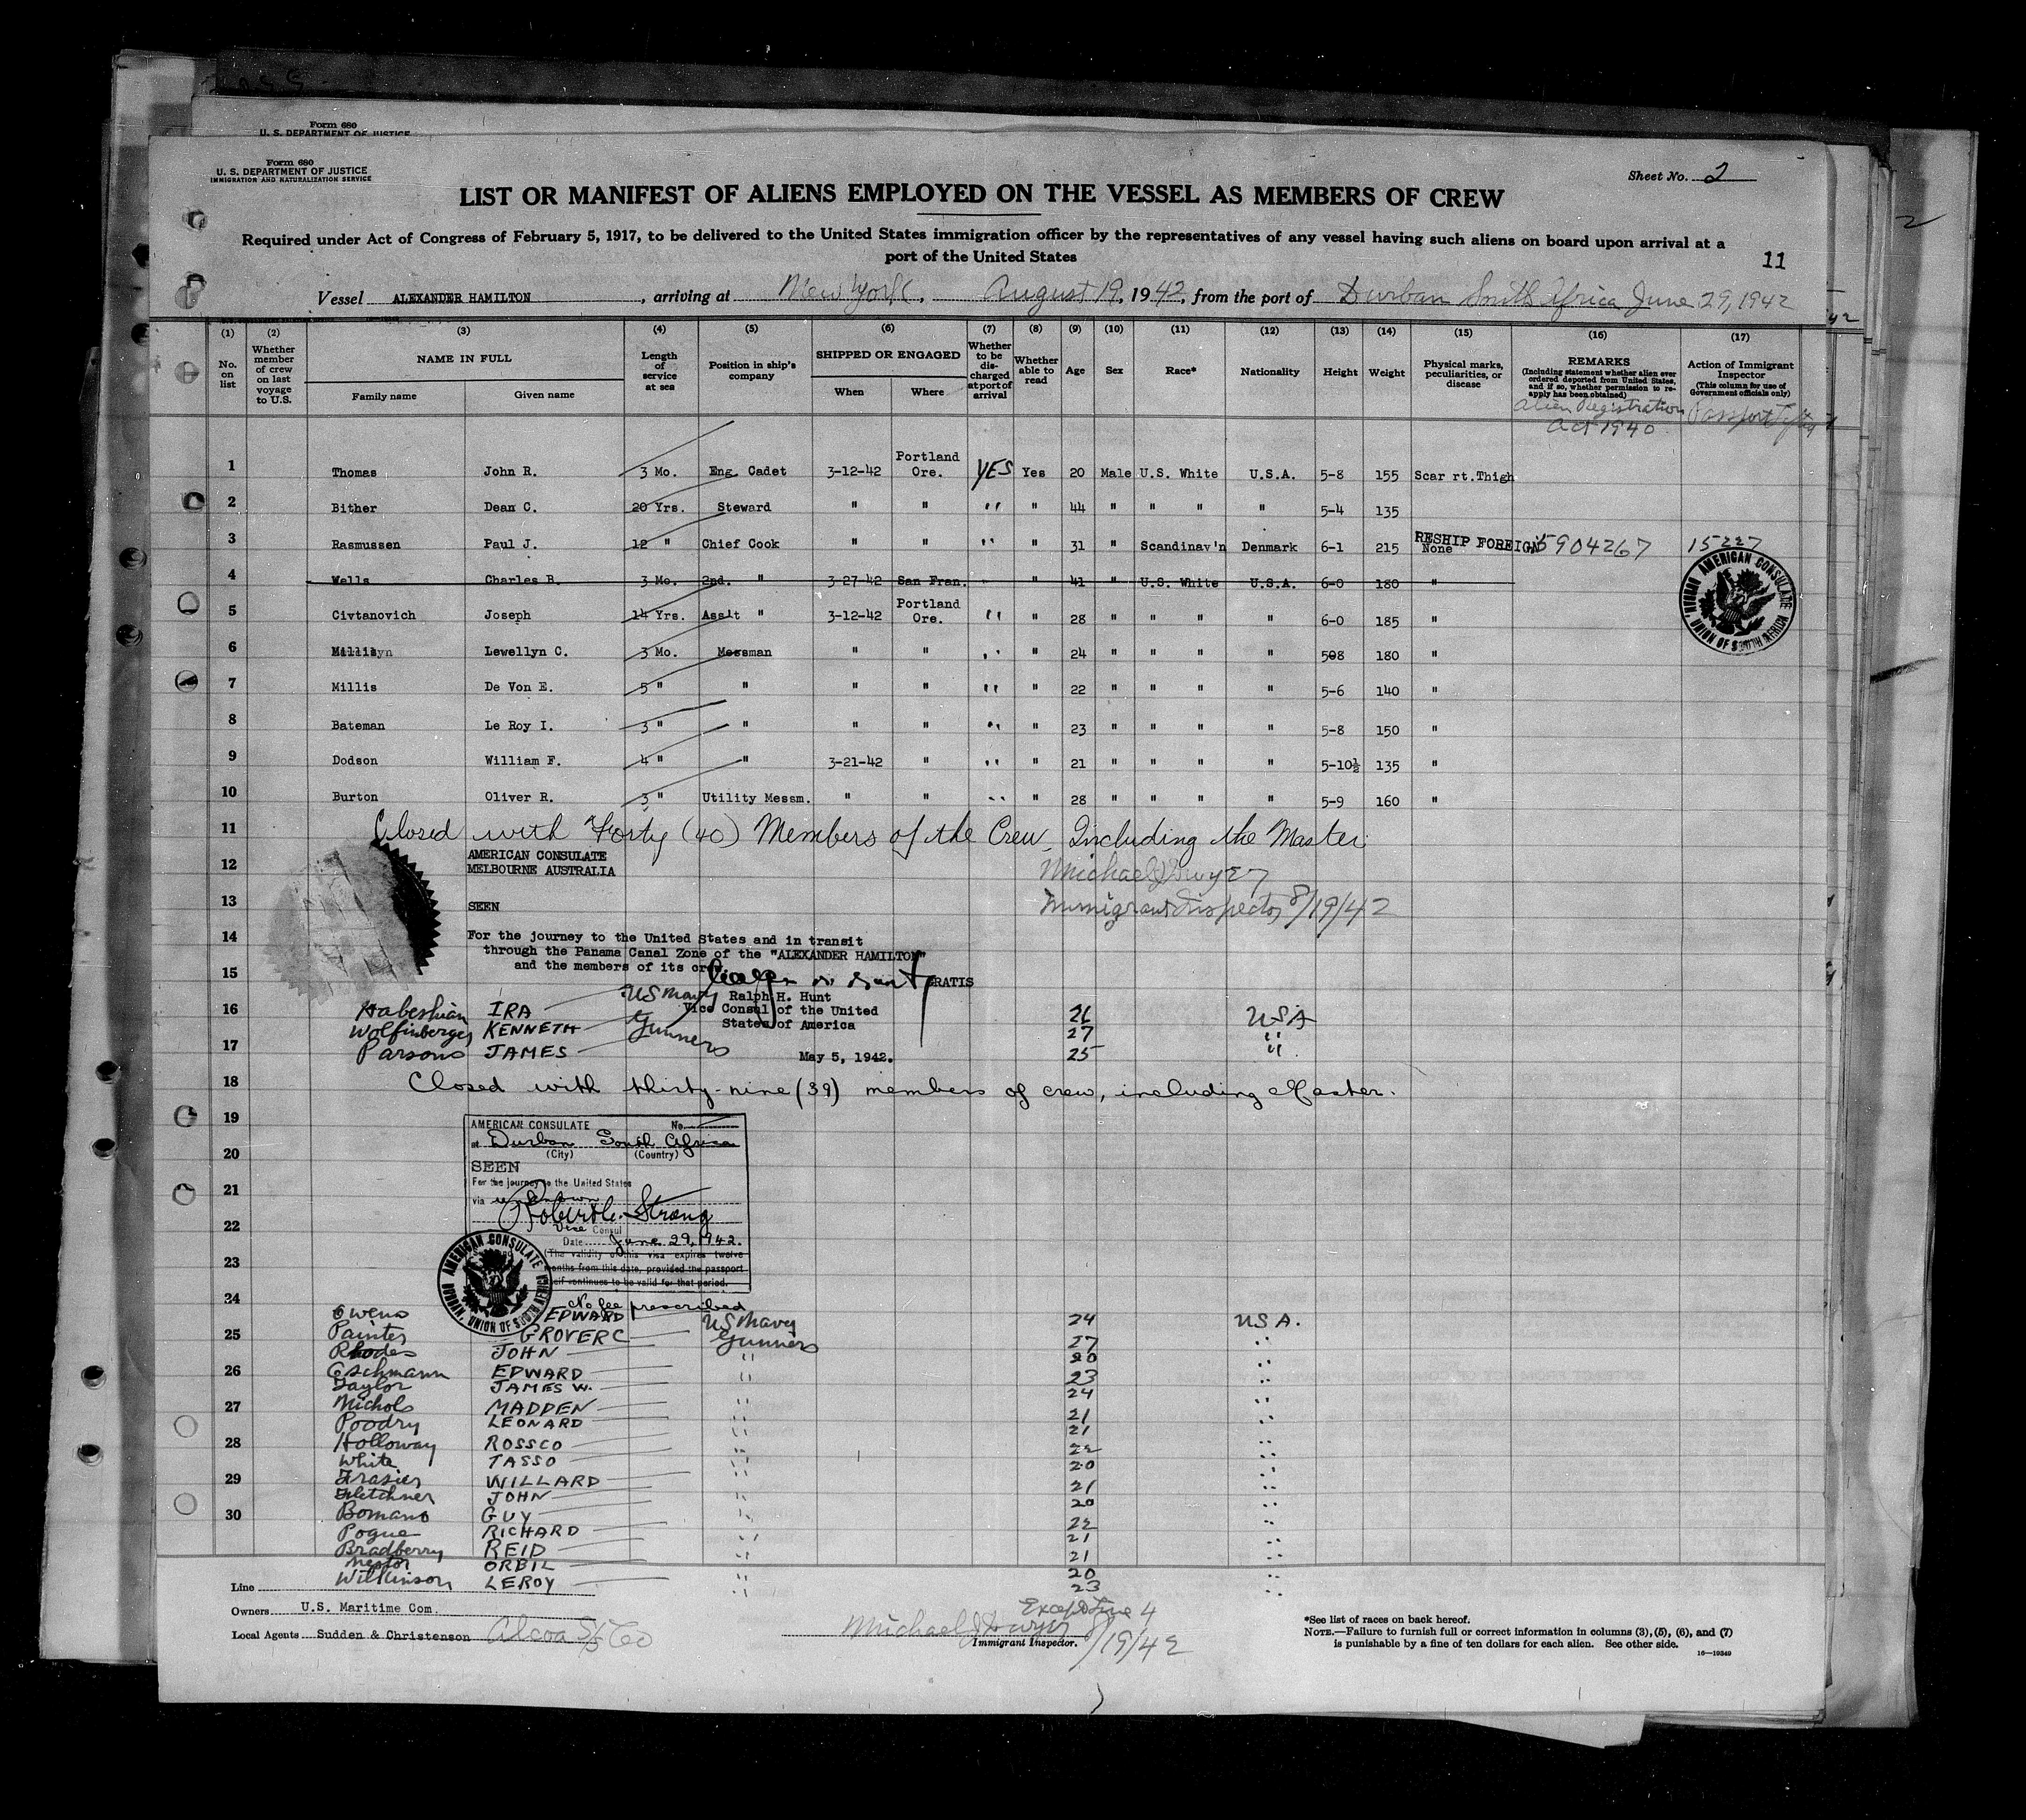 Form 680
U. S. DEPARTMENT OF JUSTICE
Form 680
U. S. DEPARTMENT OF JUSTICE
IMMIGRATION AND NATURALIZATION SERVICE
Sheet No. 2
LIST OR MANIFEST OF ALIENS EMPLOYED ON THE VESSEL AS MEMBERS OF CREW
Required under Act of Congress of February 5, 1917, to be delivered to the United States immigration officer by the representatives of any vessel having such aliens on board upon arrival at a
port of the United States
11
Vessel ALEXANDER HAMILTON, arriving at New York, August 19, 1942, from the port of Durban South Africa June 29, 1942
(1) (2) (3) (4) (5) (6) (7) (8) (9) (10) (11) (12) (13) (14) (15) (16) (17)
No. on list
Whether member of crew on last voyage to U.S.
NAME IN FULL
Family name Given name
Length of service at sea
Position in ship's company
SHIPPED OR ENGAGED
When Where
Whether to be discharged at port of arrival
Whether able to read
Age
Sex
Race*
Nationality
Height
Weight
Physical marks, peculiarities, or disease
REMARKS
(Including statement whether alien ever ordered deported from United States, and if so, whether permission to reapply has been obtained)
Alien Registration
Act 1940
Action of Immigrant Inspector
(This column for use of Government officials only)
Passport
1 Thomas John R. 3 Mo. Eng. Cadet 3-12-42 Portland Ore. YES Yes 20 Male U.S. White U.S.A. 5-8 155 Scar rt.Thigh
2 Bither Dean C. 20 Yrs. Steward " " " " 44 " " " " 5-4 135
3 Rasmussen Paul J. 12 " Chief Cook " " " " 31 " Scandinav'n Denmark 6-1 215 None RESHIP FOREIGN 5904267 15227
4 Wells Charles B. 3 Mo. 2nd. " 3-27-42 San Fran. " 41 " U.S. White U.S.A. 6-0 180 "
5 Civtanovich Joseph 14 Yrs. Ass't " 3-12-42 Portland Ore. " " 28 " " " " 6-0 185 "
6 Lewellyn C. 3 Mo. Messman " " " " 24 " " " " 508 180 "
7 Millis De Von E. 5 " " " " " " 22 " " " " 5-6 140 "
8 Bateman Le Roy I. 3 " " " " " " 23 " " " " 5-8 150 "
9 Dodson William F. 4 " " 3-21-42 " " " 21 " " " " 5-10½ 135 "
10 Burton Oliver R. 3 " Utility Messm. " " " " 28 " " " " 5-9 160 "
AMERICAN CONSULATE
DURBAN, UNION OF SOUTH AFRICA
11 Closed with Forty (40) Members of the Crew, Including the Master
12 AMERICAN CONSULATE
MELBOURNE AUSTRALIA
Michael J Dwyer
13 SEEN
Immigrant Inspector 8/19/42
14 For the journey to the United States and in transit
through the Panama Canal Zone of the "ALEXANDER HAMILTON"
15 and the members of its crew
GRATIS
Ralph H. Hunt
Vice Consul of the United
States of America
May 5, 1942.
16 Habeshian IRA US Navy 26 USA
Wolfinberger KENNETH Gunners 27 "
17 Parsons JAMES 25 "
18 Closed with thirty-nine (39) members of crew, including Master.
19 AMERICAN CONSULATE No.
at Durban South Africa
20 (City) (Country)
SEEN
21 For the journey to the United States
via unknown
Robert C. Strong
22 Vice Consul
Date June 29, 1942.
23 (The validity of this visa expires twelve
months from this date, provided the passport
itself continues to be valid for that period.
AMERICAN CONSULATE
DURBAN, UNION OF SOUTH AFRICA
34 No fee prescribed
Owens EDWARD US Navy 24 USA.
25 Painter GROVER C Gunners 27 "
Rhodes JOHN " 20 "
26 Eschmann EDWARD " 23 "
Taylor JAMES W. 24 "
27 Nichols MADDEN " 21 "
Poodry LEONARD " 21 "
28 Holloway ROSSCO " 22 "
White TASSO " 20 "
29 Frasier WILLARD " 21 "
Fletchner JOHN " 20 "
30 Bomano GUY " 22 "
Pogue RICHARD " 21 "
Bradberry REID " 21 "
Nestor ORBIL " 20 "
Wilkinson LEROY " 23 "
Line
Owners U.S. Maritime Com.
Local Agents Sudden & Christenson Alcoa S/S Co
Except Line 4
Michael J Dwyer 8/19/42
Immigrant Inspector.
*See list of races on back hereof.
NOTE.—Failure to furnish full or correct information in columns (3), (5), (6), and (7)
is punishable by a fine of ten dollars for each alien. See other side.
16—19349